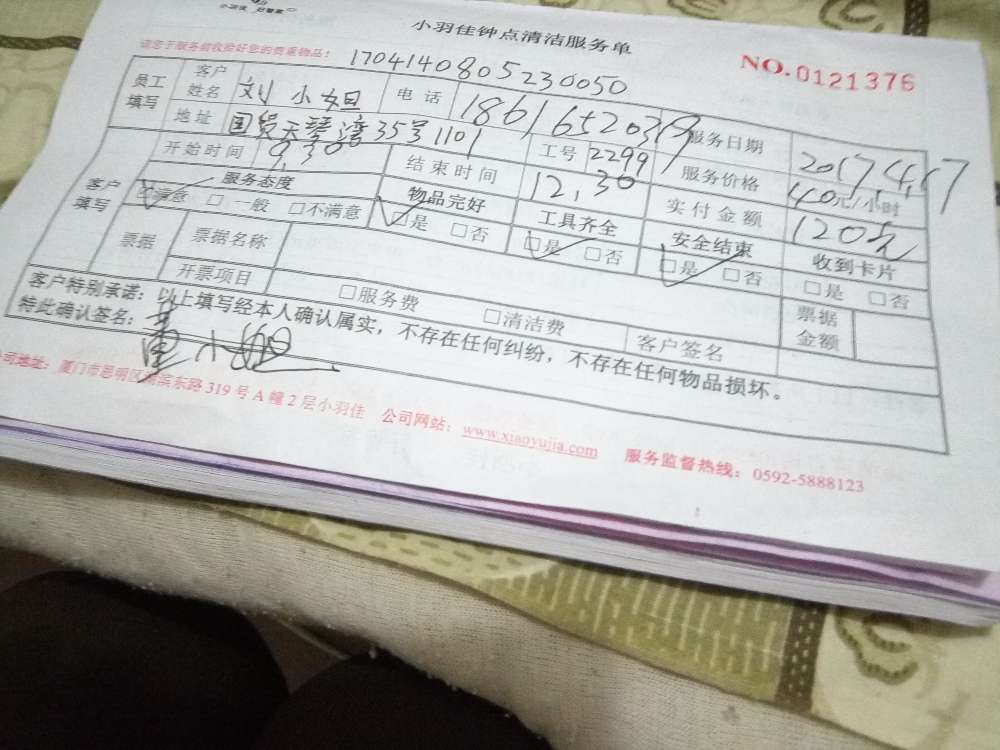 小羽佳钟点清洁服务单
请您于服务前收捡好您的贵重物品: 1704140805230050
NO.0121376
员工填写 客户姓名 刘小姐 电话 18616520399 服务日期 2017.4.17
地址 国贸天琴湾35号1101 工号 2299 服务价格 40元/小时
开始时间 9,30 结束时间 12,30 实付金额 120元
客户填写 服务态度 物品完好 工具齐全 安全结束 收到卡片
☑满意 □一般 □不满意 ☑是 □否 ☑是 □否 ☑是 □否 □是 □否
票据 票据名称
开票项目 □服务费 □清洁费 客户签名 票据金额
客户特别承诺:以上填写经本人确认属实,不存在任何纠纷,不存在任何物品损坏。
特此确认签名:
公司地址:厦门市思明区湖滨东路319号A幢2层小羽佳 公司网站:www.xiaoyujia.com 服务监督热线:0592-5888123